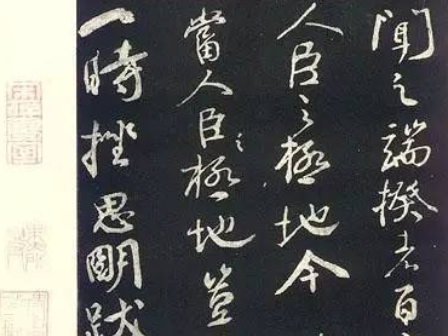 聞之端揆者百
人臣之極地今
當人臣之極地豈
一時挫思明跋